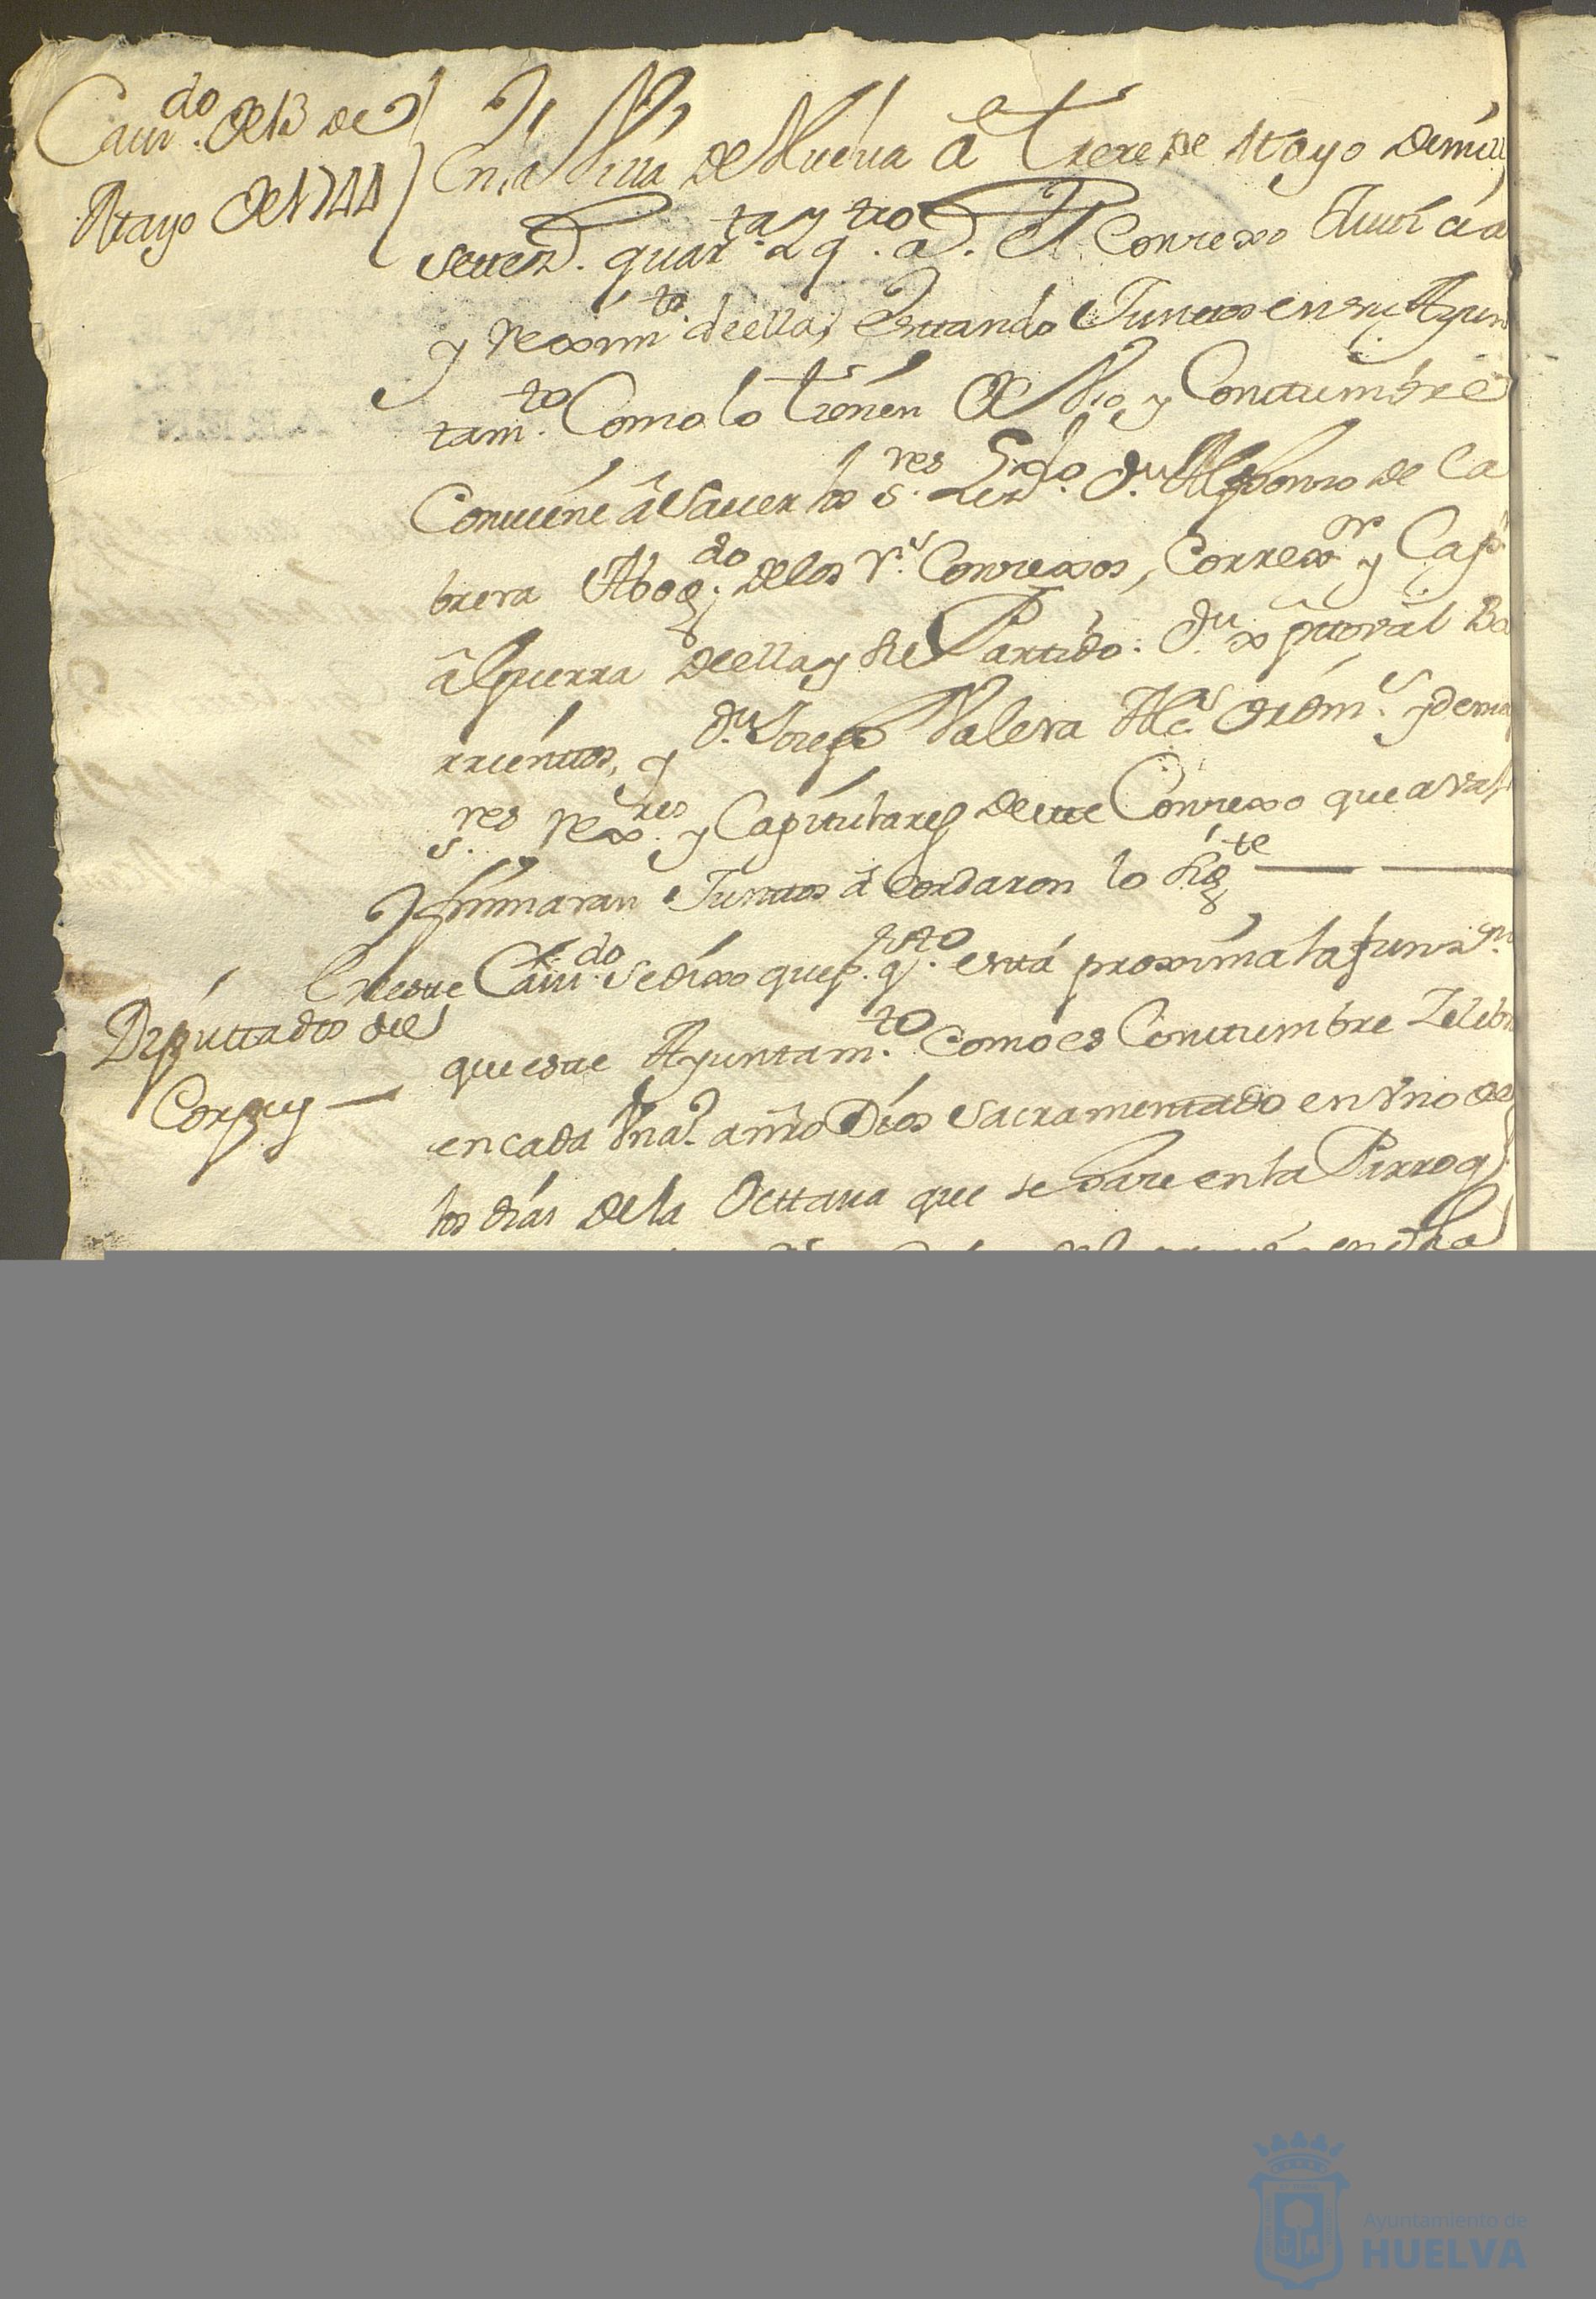 Cauí.do de 13 de
Mayo de 1744
En la Villa de Huelua â treze de Mayo de mill
settez.s quar.ta y q.tro a.s El Conzexo Justicia
y reximi.to de ella, estando Juntos en su Ayun
tam.to Como lo tienen de Vso y Consttumbre
Conuiene â Sauer los s.res Lizdo. Dn. Alphonso de Ca
brera Abog.do de los r.s Conzexos, Correx.or y Cap.n
â Guerra de ella y su Partido: Dn. xptoval Ba
rrientos, y Dn. Joseph Valera Alc.s ordin.s y demas
s.res rex.res y Capitulares de este Conzexo que auajo
firmaran Juntos âcordaron lo sig.te
Diputtados del
Corpus
En este Cauí.do se dixo que p.r q.to está proxima la funz.on
que este Ayuntam.to como es Consttumbre Zelebra
en cada Vn año â nro Dios Sacramentado en Vno de
los dias de la Octtaua que se haze en la Parroq.l
en dha
Ayuntamiento de
HUELVA